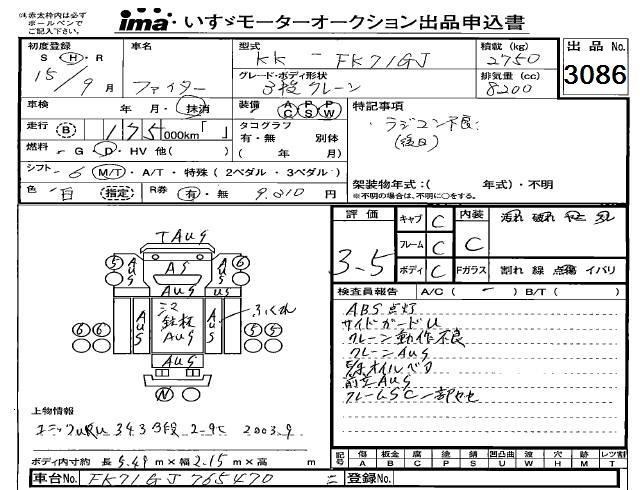 (注)赤太枠内は必ず
ボールペンで
ご記入下さい。
ima・いすゞモーターオークション出品申込書
出品No.
3086
初度登録
S・H・R
15/9月
車名
ファイター
型式
KK-FK71GJ
グレード・ボディ形状
3段クレーン
積載(kg)
2750
排気量(cc)
8200
車検 年 月・抹消
装備 AC PS PW
走行 B 175,000km「 」
タコグラフ
有・無 別体
( 年 月)
燃料 - G・D・HV 他( )
シフト - 6 M/T・A/T・特殊(2ペダル・3ペダル)
色 - 白 指定
R券 有・無 9,010円
特記事項
・ラジコン不良
(後日)
架装物年式:( 年式)・不明
※不明の場合は、不明に○をする。
評価
3.5
キャブ C
フレーム C
ボディ C
内装 C
汚れ 破れ
Fガラス 割れ 線 点傷 イバリ
検査員報告 A/C( - ) B/T( )
ABS点灯
サイドガードU
クレーン動作不良
クレーンAUS
オイルベタ
前立AUS
フレームSC一部ヤセ
TAUS
5 AUS AS AUS 5
AUS
AUS シマ鉄板AUS AUS ふくれ
6 6 6 6
AUS
N
上物情報
ユニックURU343 3段 2.9t 2003.9
ボディ内寸約 長 5.49m×幅 2.15m×高 m
記号 傷A 板金B 腐C 塗P 錆S 凹凸曲U 波W 穴H 跡M レンズ割T
車台No. FK71GJ 765470
登録No.